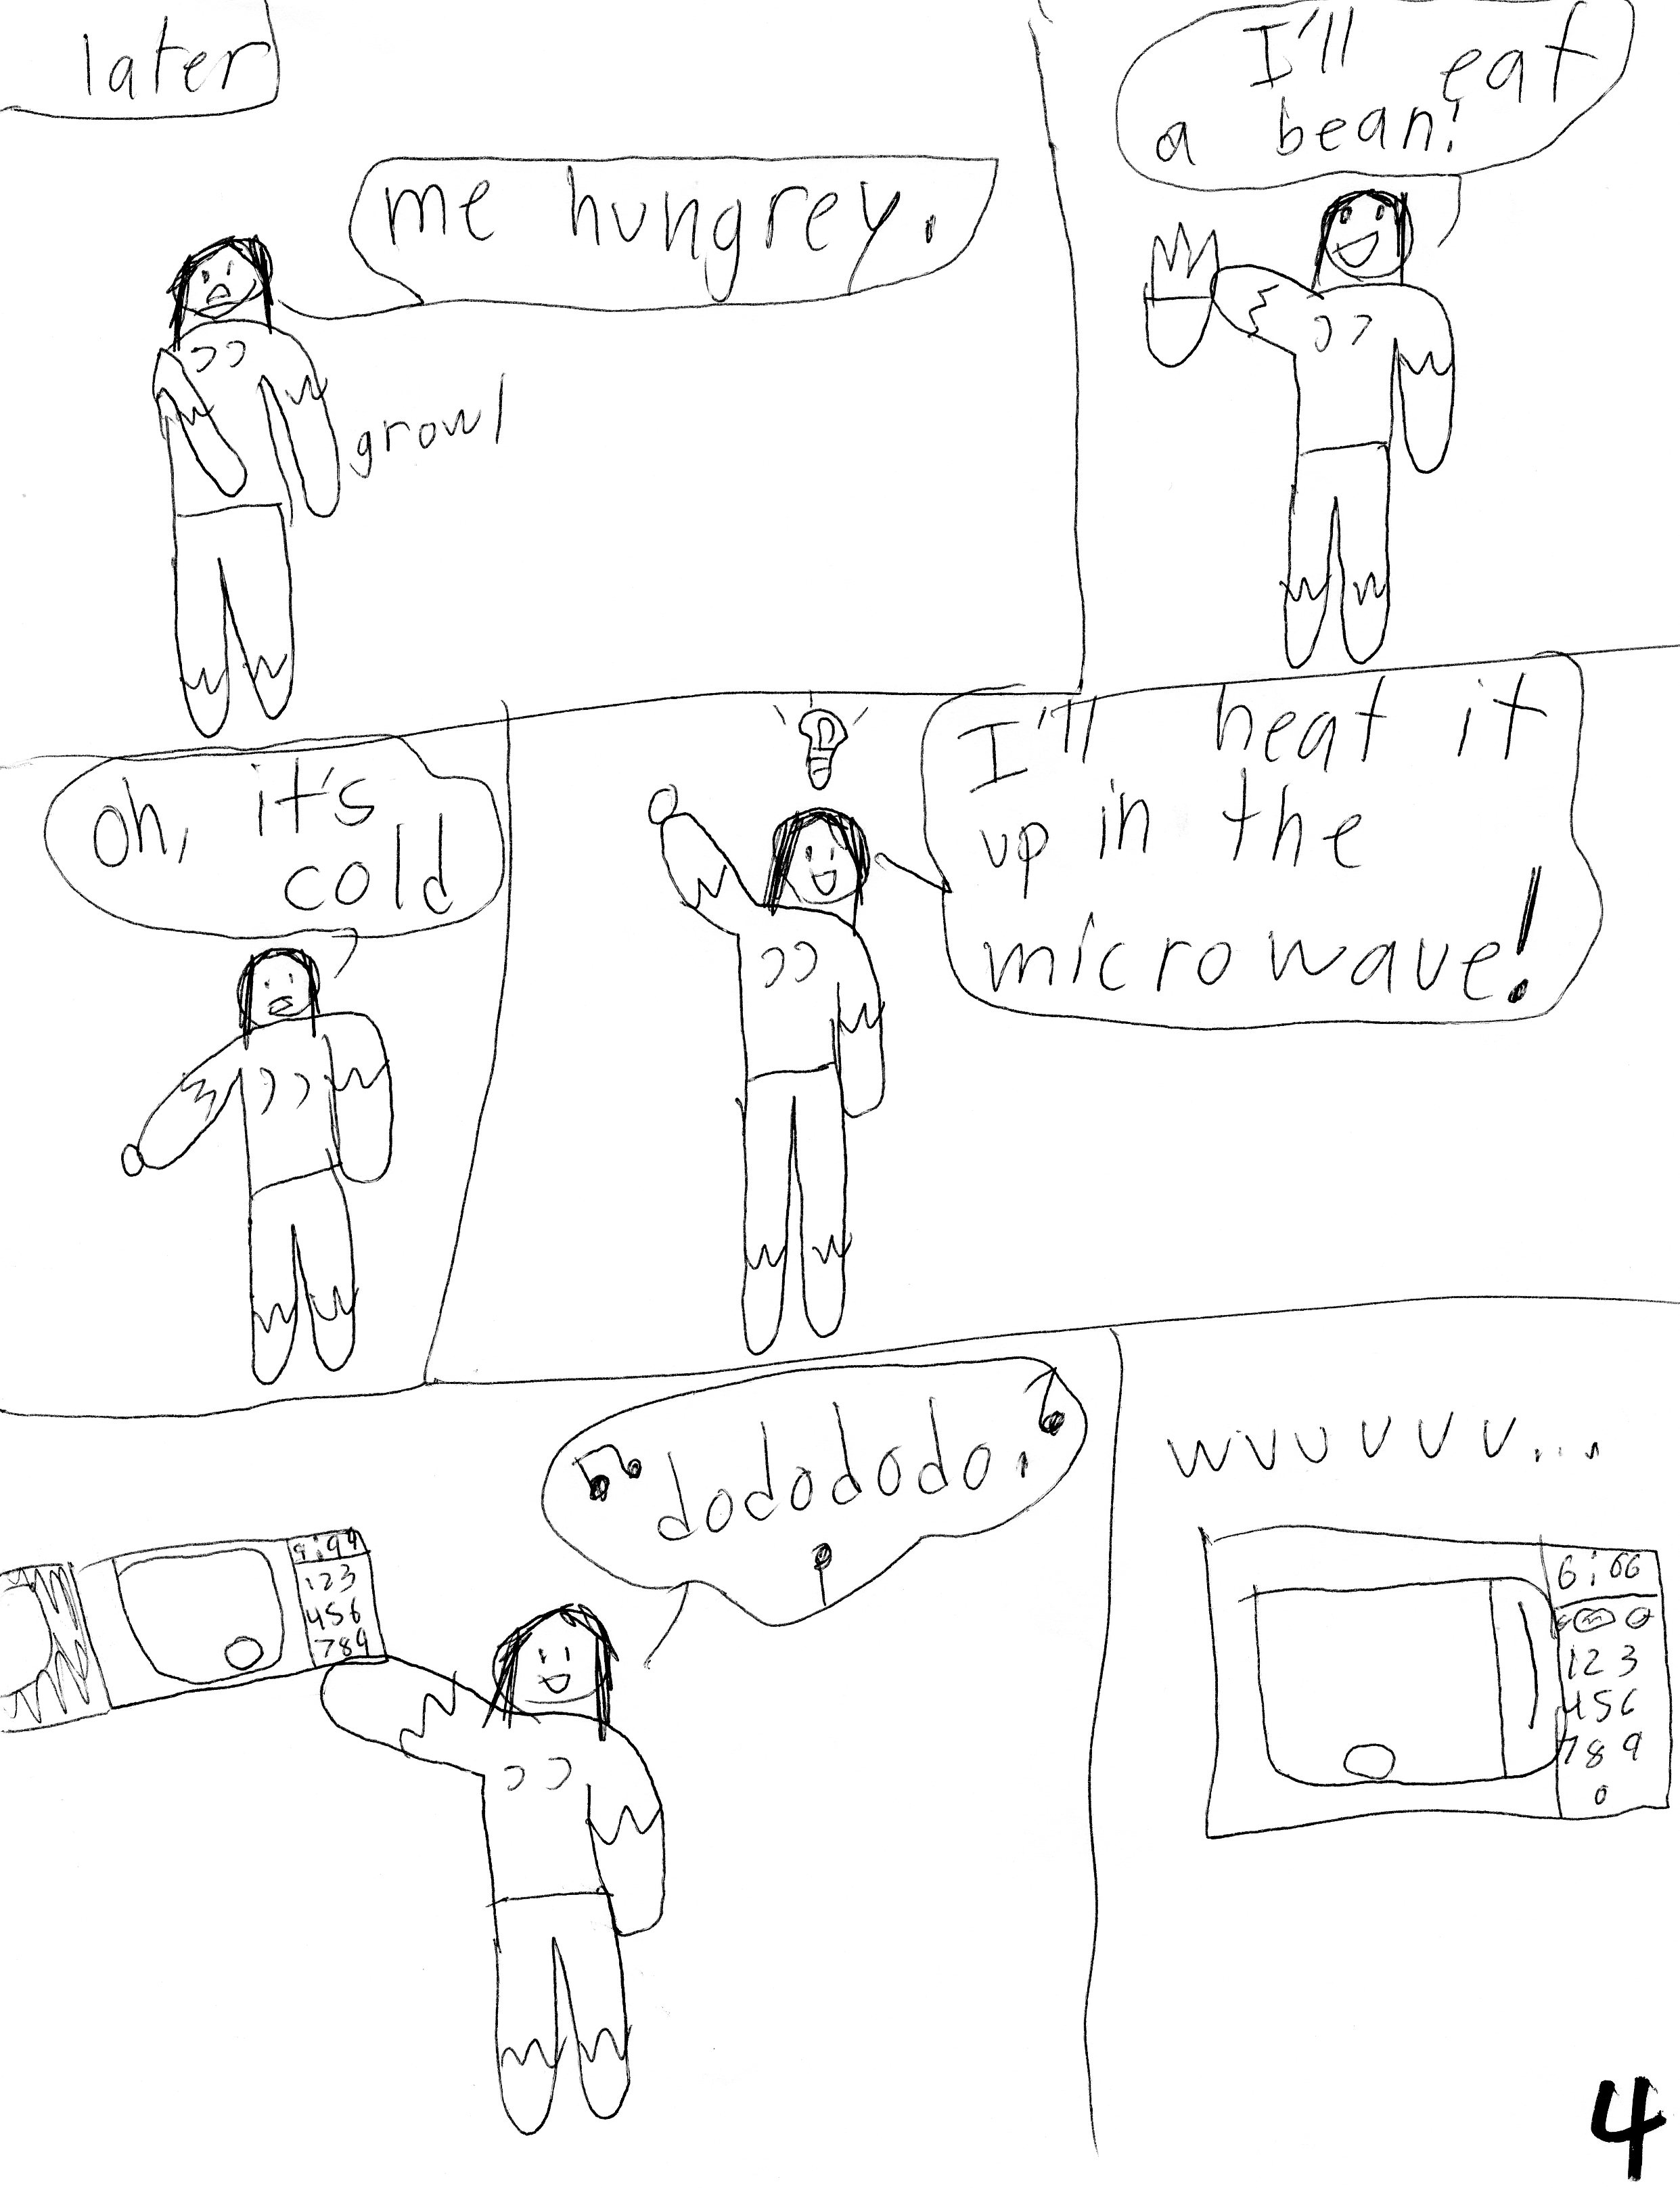 later
me hungrey.
growl
I'll eat
a bean!
oh, it's
cold
I'll heat it
up in the
microwave!
dodododo.
9:99
123
456
789
wvuuuvv...
6:66
123
456
789
0
4